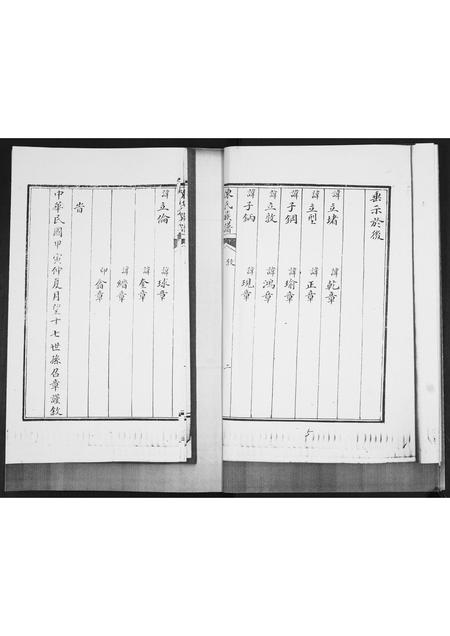 垂示於後
諱立堵　諱乾章
諱立型　諱正章
諱子鋼　諱瑜章
諱立敦　諱鴻章
諱子鈵　諱現章
氏族譜
敘
二
諱立倫　諱球章
諱奎章
諱縉章
印 章
旹
中華民國甲寅仲夏月望十七世孫召章謹敘